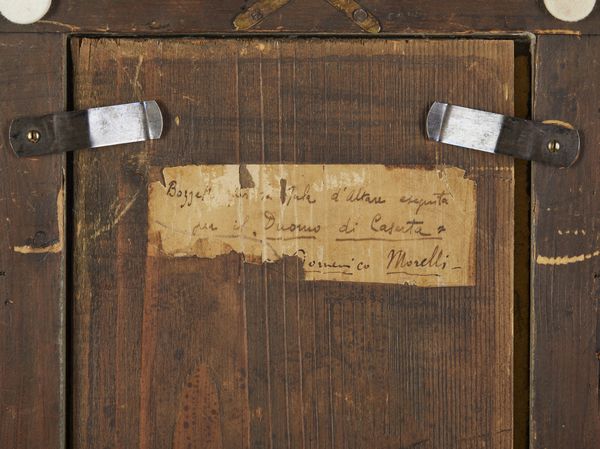 d'Altare eseguita
per il Duomo di Caserta
Domenico Morelli